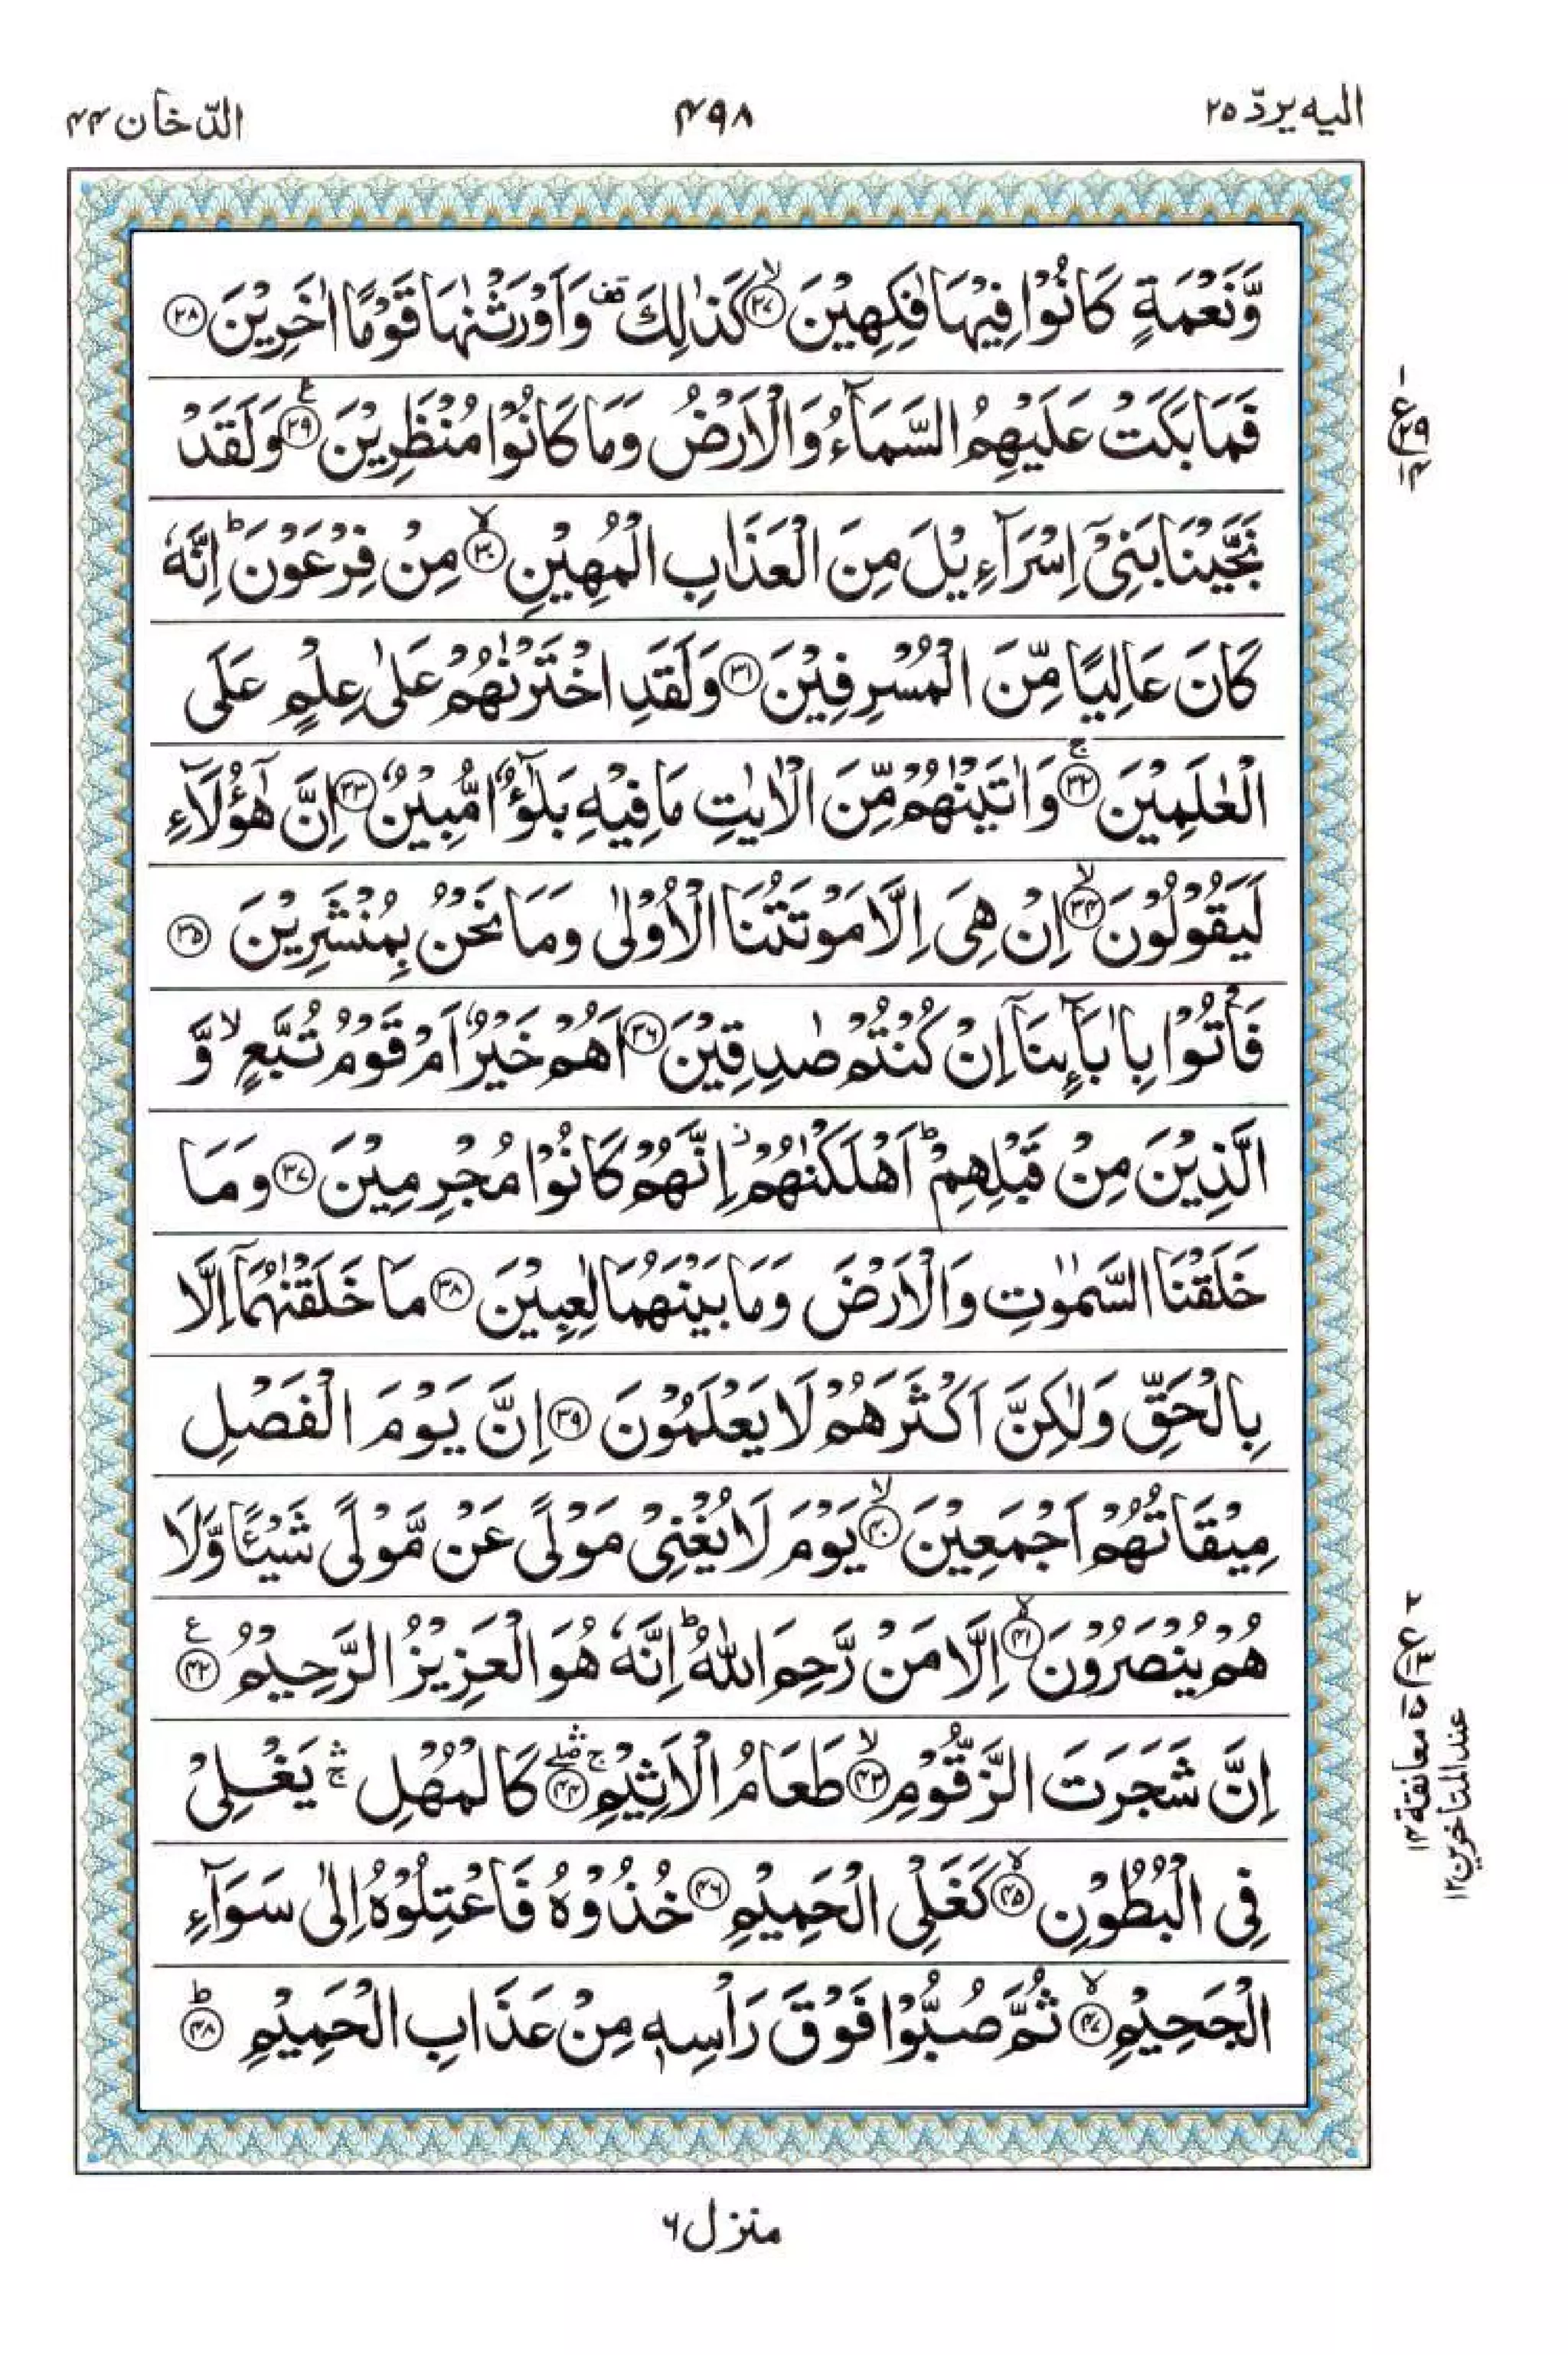 الیه یردّ ۲۵
۴۹۸
الدّخان ۴۴
وَّنَعْمَةٍ كَانُوْا فِیْهَا فٰكِهِیْنَ ۙ﴿۲۷﴾ كَذٰلِكَ ۫ وَاَوْرَثْنٰهَا قَوْمًا اٰخَرِیْنَ ﴿۲۸﴾
فَمَا بَكَتْ عَلَیْهِمُ السَّمَآءُ وَالْاَرْضُ وَمَا كَانُوْا مُنْظَرِیْنَ ﴿۲۹﴾ ع وَلَقَدْ
نَجَّیْنَا بَنِیْۤ اِسْرَآءِیْلَ مِنَ الْعَذَابِ الْمُهِیْنِ ۙ﴿۳۰﴾ مِنْ فِرْعَوْنَ ؕ اِنَّهٗ
كَانَ عَالِیًا مِّنَ الْمُسْرِفِیْنَ ﴿۳۱﴾ وَلَقَدِ اخْتَرْنٰهُمْ عَلٰی عِلْمٍ عَلَی
الْعٰلَمِیْنَ ۚ﴿۳۲﴾ وَاٰتَیْنٰهُمْ مِّنَ الْاٰیٰتِ مَا فِیْهِ بَلٰٓؤٌا مُّبِیْنٌ ﴿۳۳﴾ اِنَّ هٰۤؤُلَآءِ
لَیَقُوْلُوْنَ ۙ﴿۳۴﴾ اِنْ هِیَ اِلَّا مَوْتَتُنَا الْاُوْلٰی وَمَا نَحْنُ بِمُنْشَرِیْنَ ﴿۳۵﴾
فَاْتُوْا بِاٰبَآئِنَاۤ اِنْ كُنْتُمْ صٰدِقِیْنَ ﴿۳۶﴾ اَهُمْ خَیْرٌ اَمْ قَوْمُ تُبَّعٍ ۙ وَّ
الَّذِیْنَ مِنْ قَبْلِهِمْ ؕ اَهْلَكْنٰهُمْ ز اِنَّهُمْ كَانُوْا مُجْرِمِیْنَ ﴿۳۷﴾ وَمَا
خَلَقْنَا السَّمٰوٰتِ وَالْاَرْضَ وَمَا بَیْنَهُمَا لٰعِبِیْنَ ﴿۳۸﴾ مَا خَلَقْنٰهُمَاۤ اِلَّا
بِالْحَقِّ وَلٰكِنَّ اَكْثَرَهُمْ لَا یَعْلَمُوْنَ ﴿۳۹﴾ اِنَّ یَوْمَ الْفَصْلِ
مِیْقَاتُهُمْ اَجْمَعِیْنَ ۙ﴿۴۰﴾ یَوْمَ لَا یُغْنِیْ مَوْلًی عَنْ مَّوْلًی شَیْـًٔا وَّلَا
هُمْ یُنْصَرُوْنَ ۙ﴿۴۱﴾ اِلَّا مَنْ رَّحِمَ اللّٰهُ ؕ اِنَّهٗ هُوَ الْعَزِیْزُ الرَّحِیْمُ ﴿۴۲﴾ ع
اِنَّ شَجَرَتَ الزَّقُّوْمِ ۙ﴿۴۳﴾ طَعَامُ الْاَثِیْمِ ۚۖۛ﴿۴۴﴾ كَالْمُهْلِ ۚۛ یَغْلِیْ
فِی الْبُطُوْنِ ۙ﴿۴۵﴾ كَغَلْیِ الْحَمِیْمِ ﴿۴۶﴾ خُذُوْهُ فَاعْتِلُوْهُ اِلٰی سَوَآءِ
الْجَحِیْمِ ۙ﴿۴۷﴾ ثُمَّ صُبُّوْا فَوْقَ رَاْسِهٖ مِنْ عَذَابِ الْحَمِیْمِ ؕ﴿۴۸﴾
۱
ع ۲۹
۱۴
۲
ع ۱۳
معانقة ۱۲
عند المتأخرین ۱۲
منزل ۶